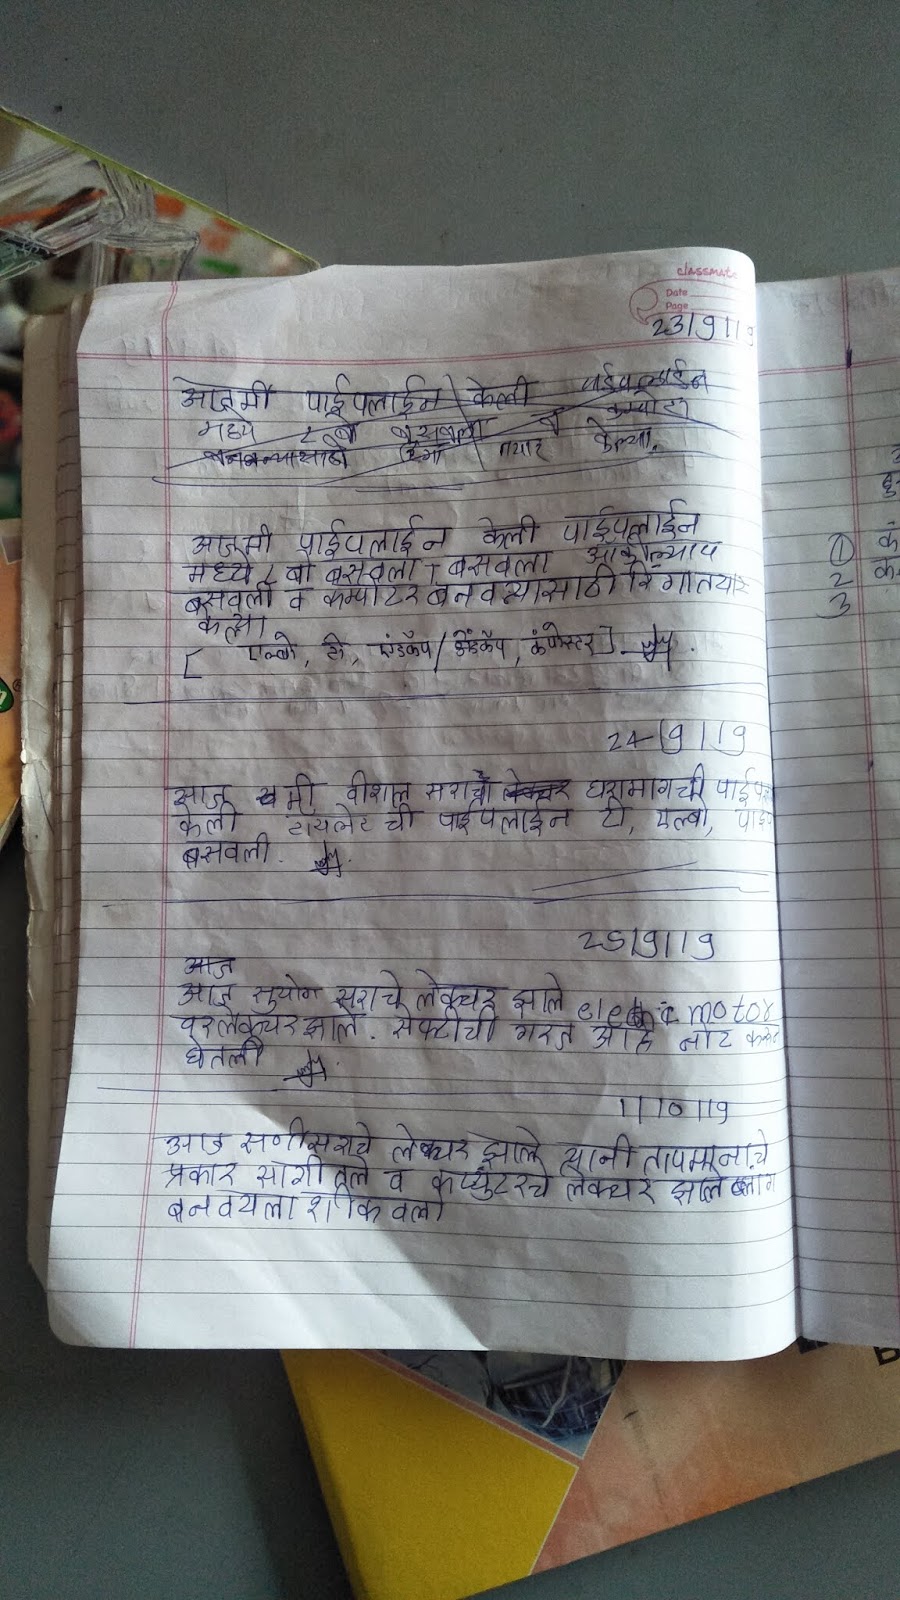 classmate
Date
Page
23/9/19
आज मी पाईपलाईन केली पाईपलाईन
मध्ये L बो बसवला व कम्पोटर
बनवन्यासाठी रिंगा तयार केल्या.
आज मी पाईपलाईन केली पाईपलाईन
मध्ये L बो बसवला T बसवला
बसवली व कम्पोटर बनवत्यासाठी रिंगा तयार
केल्या
[ एल्बो, टी, एंडकॅप/ कंपोस्टर].
24/9/19
आज मी वीशाल सराचे लेक्चर घरामागची
केली टायलेटची पाईपलाईन टी, एल्बो,
बसवली.
25/9/19
आज
आज सुयोग सराचे लेक्चर झाले motor
वर लेक्चर झाले. सेफ्टीची गरज आहे नोट
घेतली
1/10/19
आज सराचे लेक्चर झाले त्यानी तापमानाचे
प्रकार सांगीतले व कंप्युटरचे लेक्चर झाले ब्लॉग
बनवयला शीकवला
1
2
3